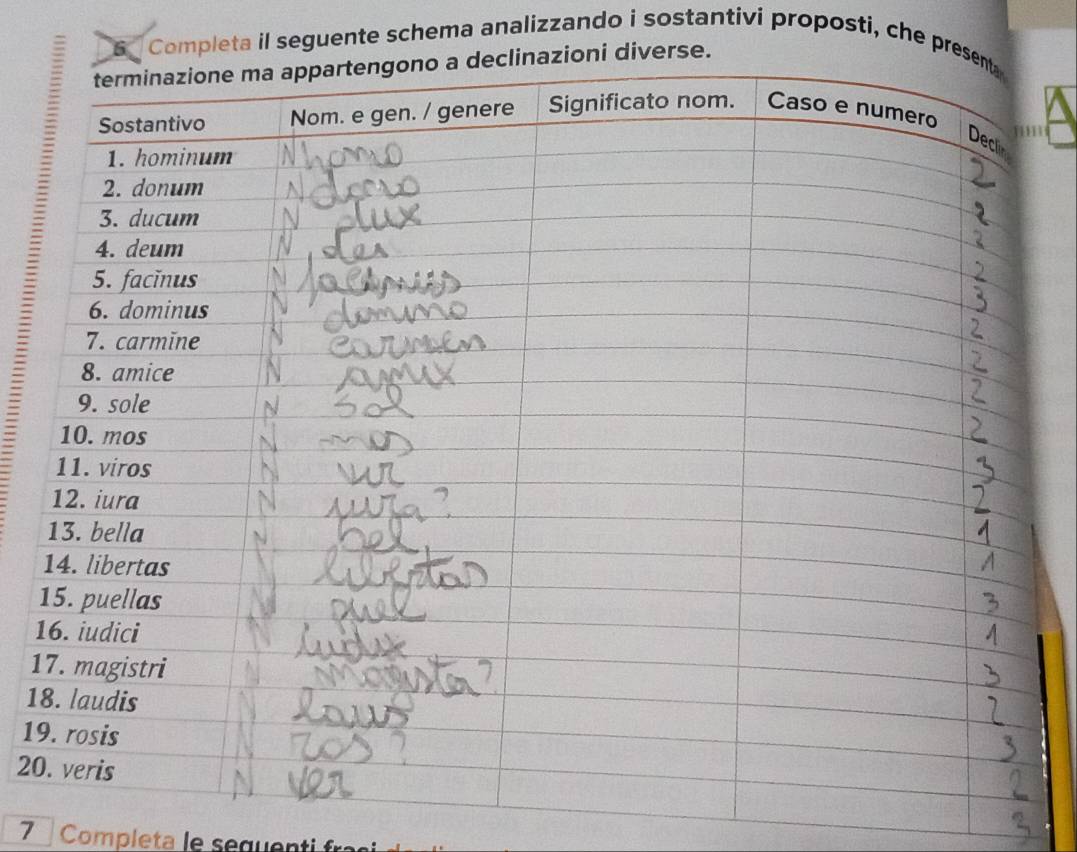 6 Completa il seguente schema analizzando i sostantivi proposti, che presenta
terminazione ma appartengono a declinazioni diverse.
Sostantivo Nom. e gen. / genere Significato nom. Caso e numero Declin
1. hominum N homo 2
2. donum N dono 2
3. ducum N dux 2
4. deum N des 2
5. facĭnus N facimiss 3
6. dominus N domino 2
7. carmĭne N carmen 2
8. amice N amix 2
9. sole N sol 2
10. mos N mos 3
11. viros N vir 2
12. iura N iura? 1
13. bella N bel 1
14. libertas N libertas 3
15. puellas N puel 1
16. iudici N iudix 3
17. magistri N magista? 2
18. laudis N laus 3
19. rosis N ros? 2
20. veris N ver 3
7 Completa le seguenti frasi